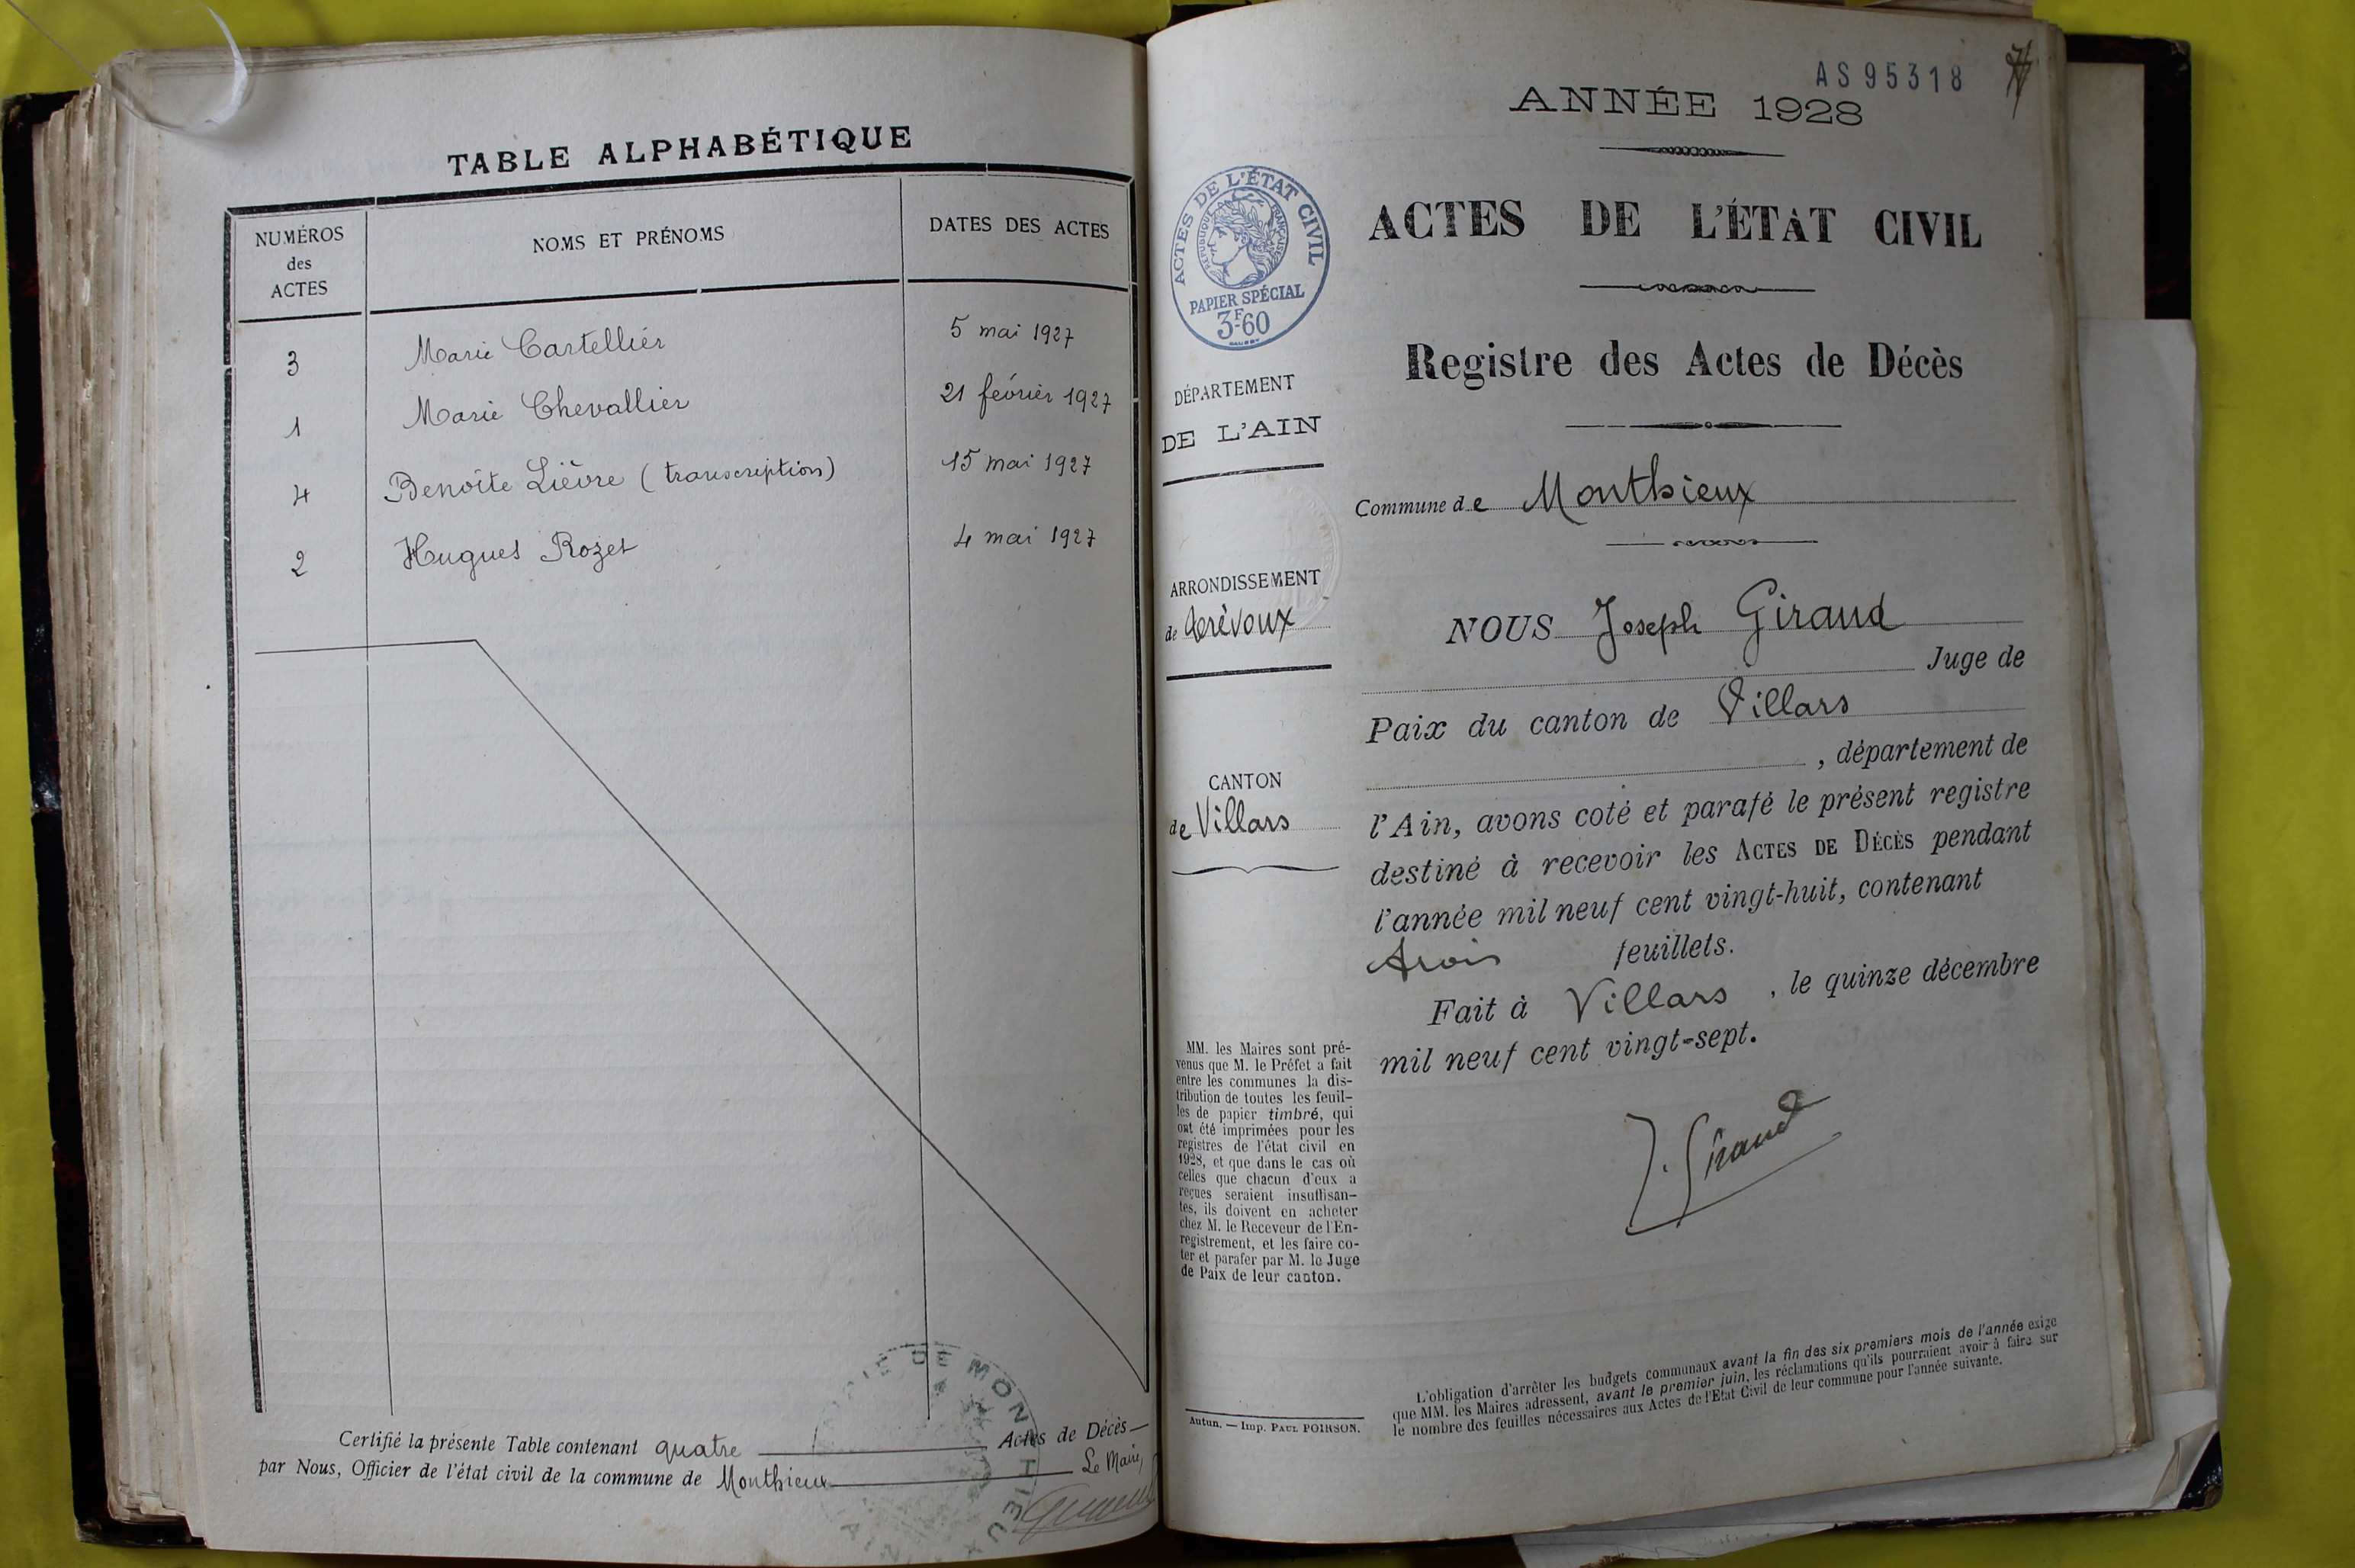 TABLE ALPHABÉTIQUE
NUMÉROS
des
ACTES
NOMS ET PRÉNOMS
DATES DES ACTES
3 Marie Cartellier 5 mai 1927
1 Marie Chevallier 21 février 1927
4 Benoîte Lièvre (transcription) 15 mai 1927
2 Hugues Rozet 4 mai 1927
Certifié la présente Table contenant quatre Actes de Décès
par Nous, Officier de l'état civil de la commune de Monthieux Le Maire,
MAIRIE DE MONTHIEUX
AS95318
ANNÉE 1928
ACTES DE L'ÉTAT CIVIL
RÉPUBLIQUE FRANÇAISE
PAPIER SPÉCIAL
3F60
ACTES DE L'ÉTAT CIVIL
Registre des Actes de Décès
DÉPARTEMENT
DE L'AIN
Commune de Monthieux
ARRONDISSEMENT
de Trévoux
NOUS Joseph Giraud
Juge de
Paix du canton de Villars
, département de
CANTON
de Villars
l'Ain, avons coté et parafé le présent registre
destiné à recevoir les ACTES DE DÉCÈS pendant
l'année mil neuf cent vingt-huit, contenant
trois feuillets.
Fait à Villars, le quinze décembre
mil neuf cent vingt-sept.
J. Giraud
MM. les Maires sont pré-
venus que M. le Préfet a fait
entre les communes la dis-
tribution de toutes les feuil-
les de papier timbré, qui
ont été imprimées pour les
registres de l'état civil en
1928, et que dans le cas où
celles que chacun d'eux a
reçues seraient insuffisan-
tes, ils doivent en acheter
chez M. le Receveur de l'En-
registrement, et les faire co-
ter et parafer par M. le Juge
de Paix de leur canton.
Autun. — Imp. PAUL POIRSON.
L'obligation d'arrêter les budgets communaux avant la fin des six premiers mois de l'année exige
que MM. les Maires adressent, avant le premier juin, les réclamations qu'ils pourraient avoir à faire sur
le nombre des feuilles nécessaires aux Actes de l'Etat Civil de leur commune pour l'année suivante.